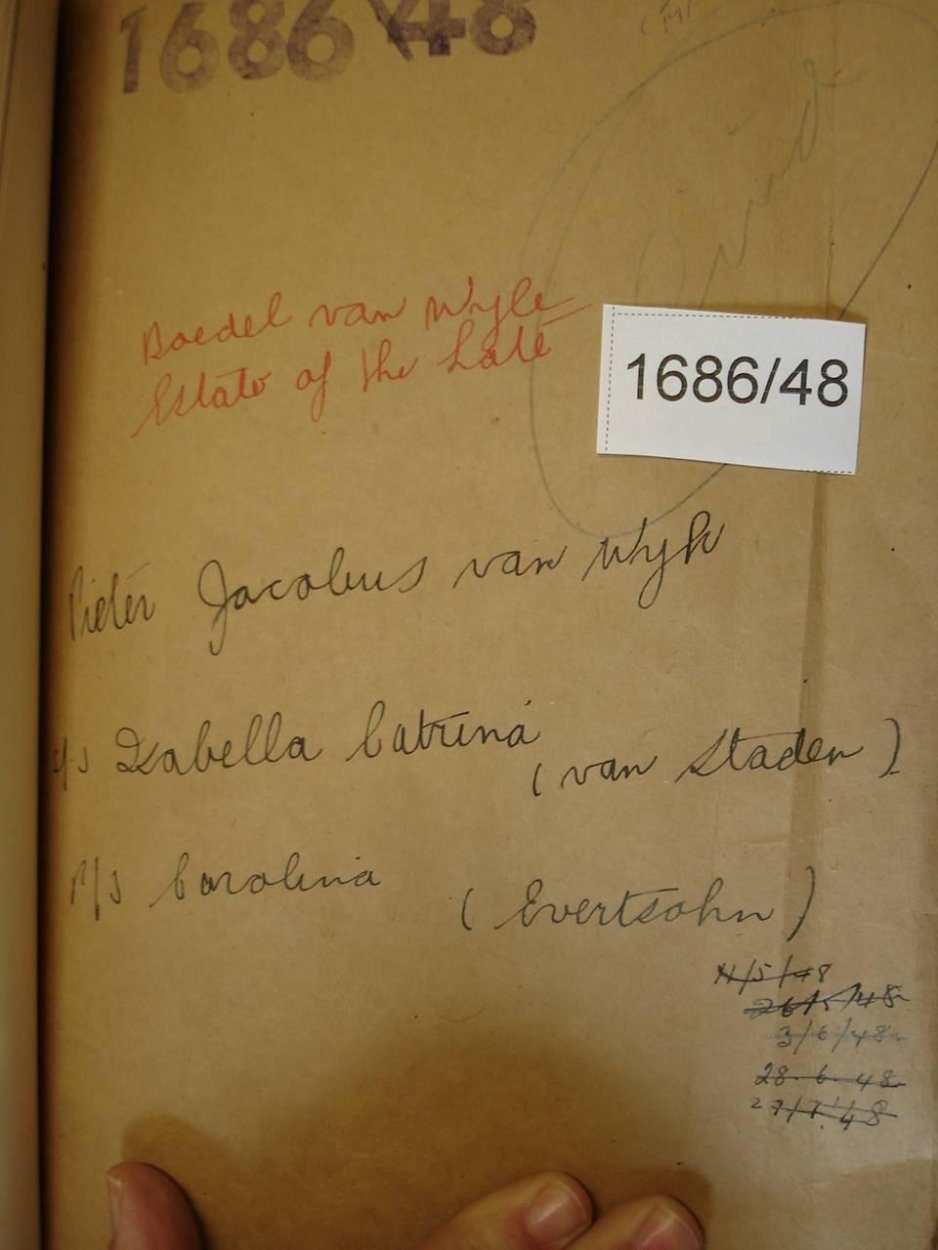 1686/48
Boedel van Wyle
Estate of the Late
1686/48
Pieter Jacobus van Wyk
n/s Isabella Catrina
(van Staden)
P/S Carolina
(Evertsohn)
4/5/48
26/5/48
3/6/48
28.6.48
27/7/48